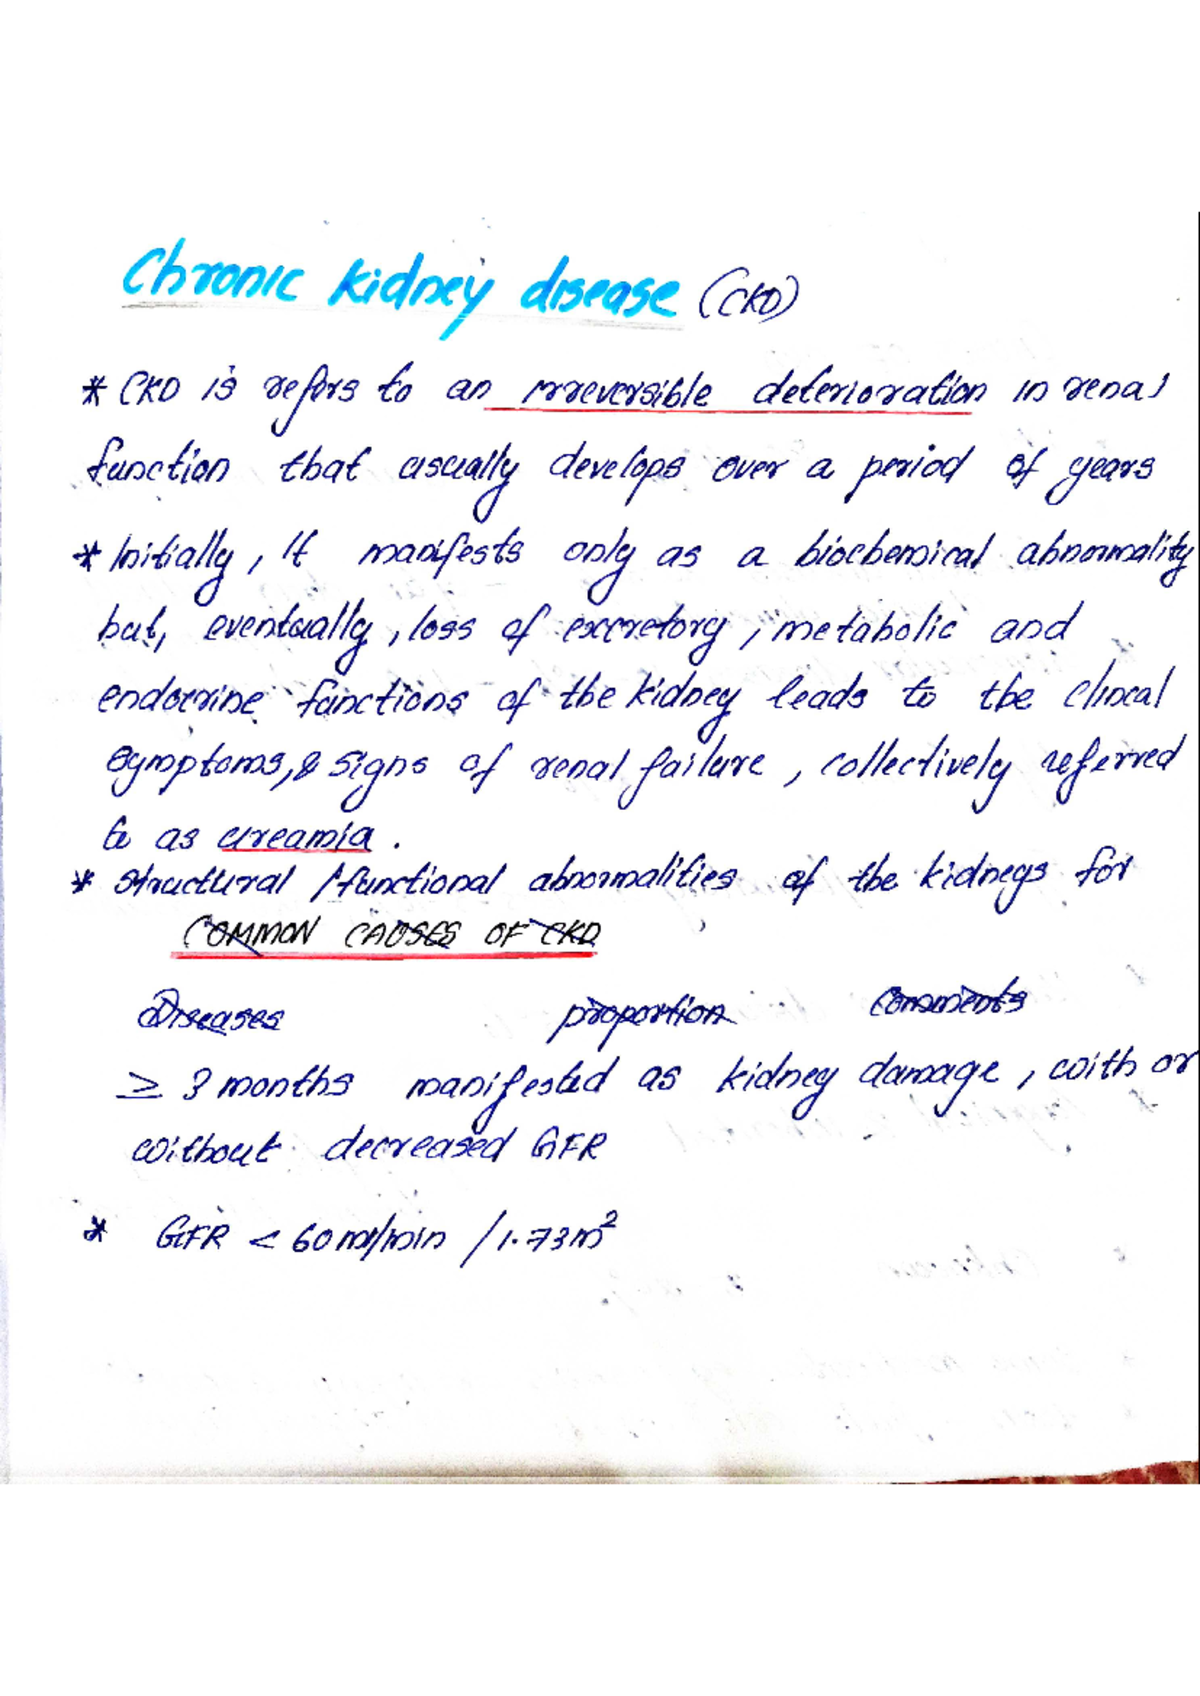 Chronic kidney disease (CKD)
* CKD is refers to an irreversible deterioration in renal
function that usually develops over a period of years
* Initially, It manifests only as a biochemical abnormality
but, eventually, loss of excretory, metabolic and
endocrine functions of the kidney leads to the clincal
symptoms, & signs of renal failure, collectively referred
to as ureamia.
* structural / functional abnormalities of the kidneys for
COMMON CAUSES OF CKD
Diseases proportion comments
≥ 3 months manifested as kidney damage, with or
without decreased GFR
* GFR < 60 ml/min / 1.73 m²